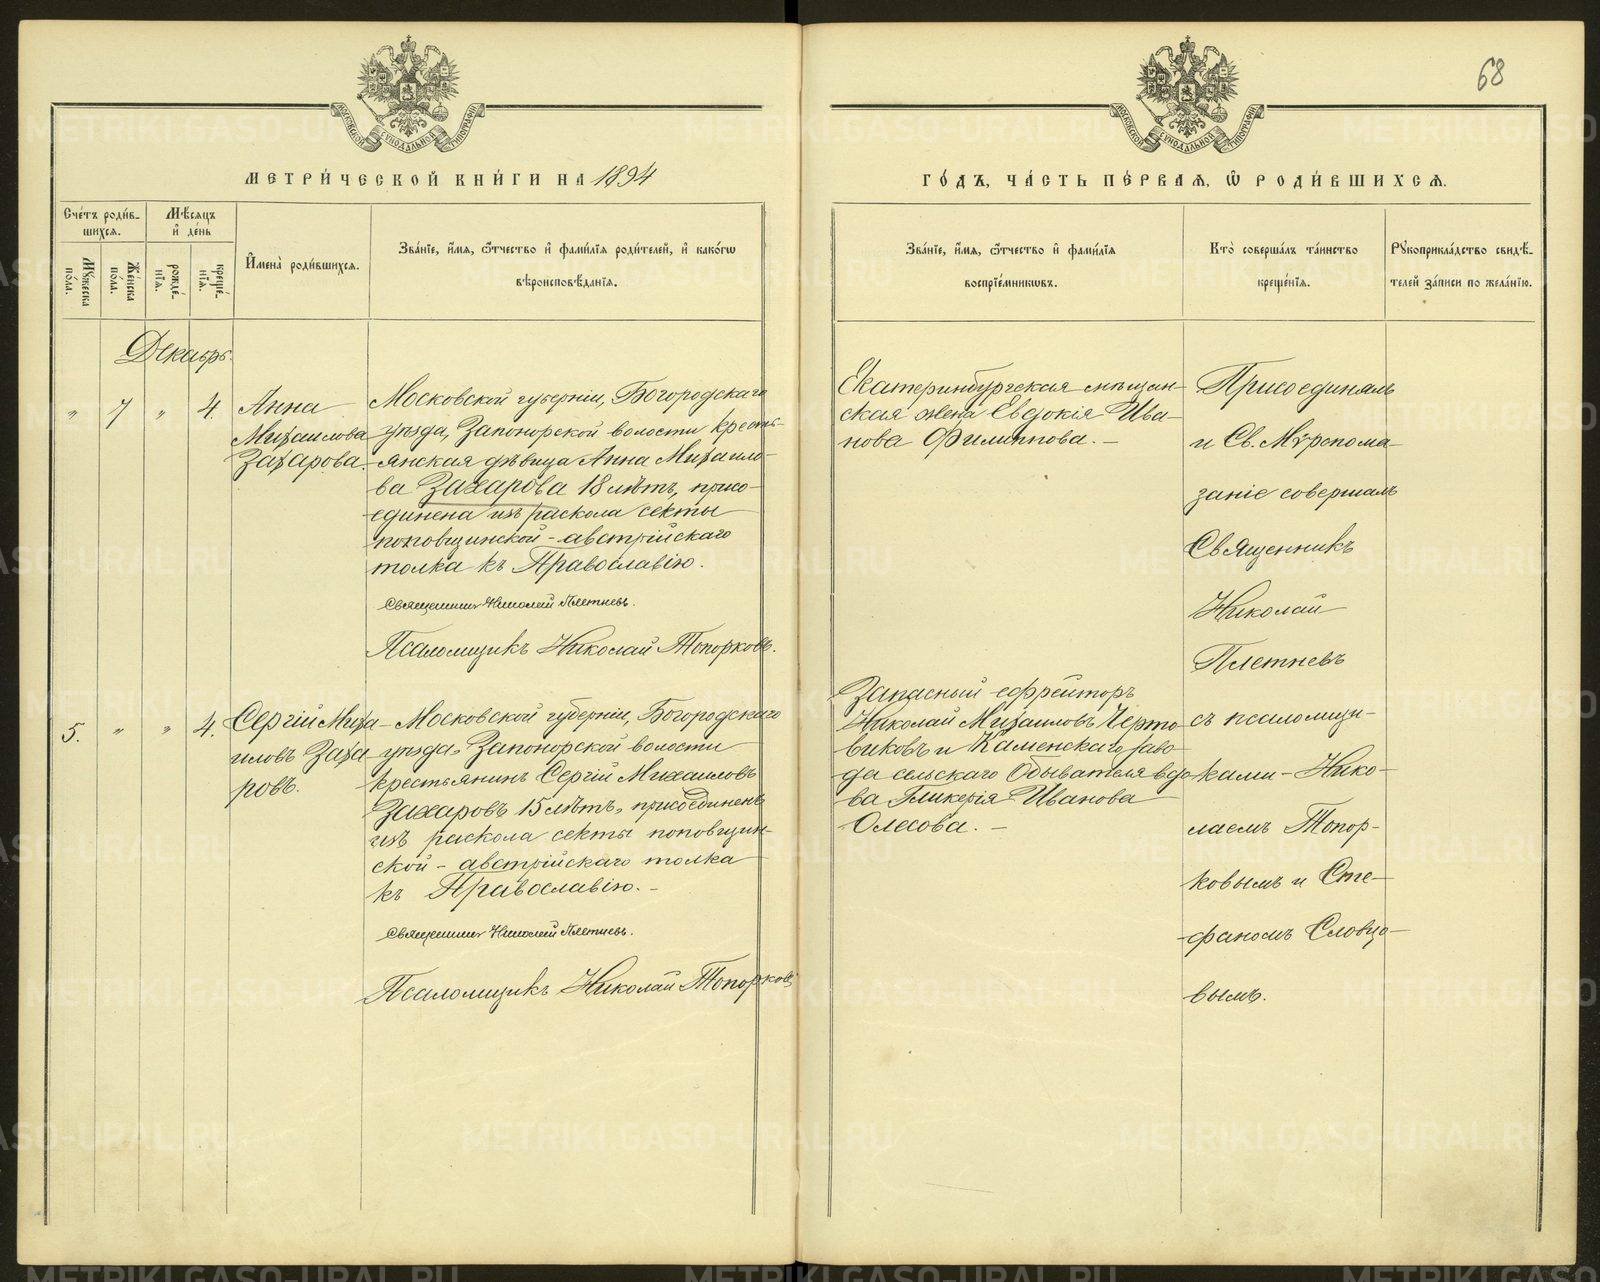 68
МОСКОВСКОЙ СѴНОДАЛЬНОЙ ТИПОГРАФІИ
МОСКОВСКОЙ СѴНОДАЛЬНОЙ ТИПОГРАФІИ
МЕТРИ́ЧЕСКОЙ КНИ́ГИ НА 1894
ГО́ДЪ, ЧА́СТЬ ПЕ́РВАѦ, Ѽ РОДИ́ВШИХСѦ.
Сче́тъ роди́в-
шихсѧ.
Мꙋжеска
по́ла.
Же́нска
по́ла.
Мѣ́сѧцъ
и҆ де́нь
рожде́-
нїѧ.
креще́-
нїѧ.
И҆мена̀ роди́вшихсѧ.
Зва́нїе, и҆́мѧ, ѻ҆́тчество и҆ фами́лїѧ роди́телей, и҆ како́гѡ
вѣроисповѣ́данїѧ.
Зва́нїе, и҆́мѧ, ѻ҆́тчество и҆ фами́лїѧ
воспрїе́мникѡвъ.
Кто̀ соверша́лъ та́инство
креще́нїѧ.
Рꙋкоприкла́дство свидѣ́-
телей за́писи по жела́нїю.
Декабрь.
" 7 " 4.
Анна
Михаилова
Захарова.
Московской губерніи, Богородскаго
уѣзда, Запонорской волости кресть-
янская дѣвица Анна Михаило-
ва Захарова 18 лѣтъ, присо-
единена изъ раскола секты
поповщинской - австрійскаго
толка къ Православію.
Священникъ Николай Плетневъ.
Псаломщикъ Николай Топорковъ.
Екатеринбургская мѣщан-
ская жена Евдокія Ива-
нова Филиппова. -
Присоединялъ
и Св. Мѵропома-
заніе совершалъ
Священникъ
Николай
Плетневъ
съ псаломщи-
ками - Нико-
лаемъ Топор-
ковымъ и Сте-
фаномъ Словцо-
вымъ.
5. " " 4.
Сергій Миха-
иловъ Заха-
ровъ.
Московской губерніи, Богородскаго
уѣзда, Запонорской волости
крестьянинъ Сергій Михаиловъ
Захаровъ 15 лѣтъ, присоединенъ
изъ раскола секты поповщин-
ской - австрійскаго толка
къ Православію. -
Священникъ Николай Плетневъ.
Псаломщикъ Николай Топорковъ
Запасный ефрейторъ
Николай Михаиловъ Черто-
виковъ и Каменскаго заво-
да сельскаго обывателя вдо-
ва Гликерія Иванова
Олесова. -
METRIKI.GASO-URAL.RU